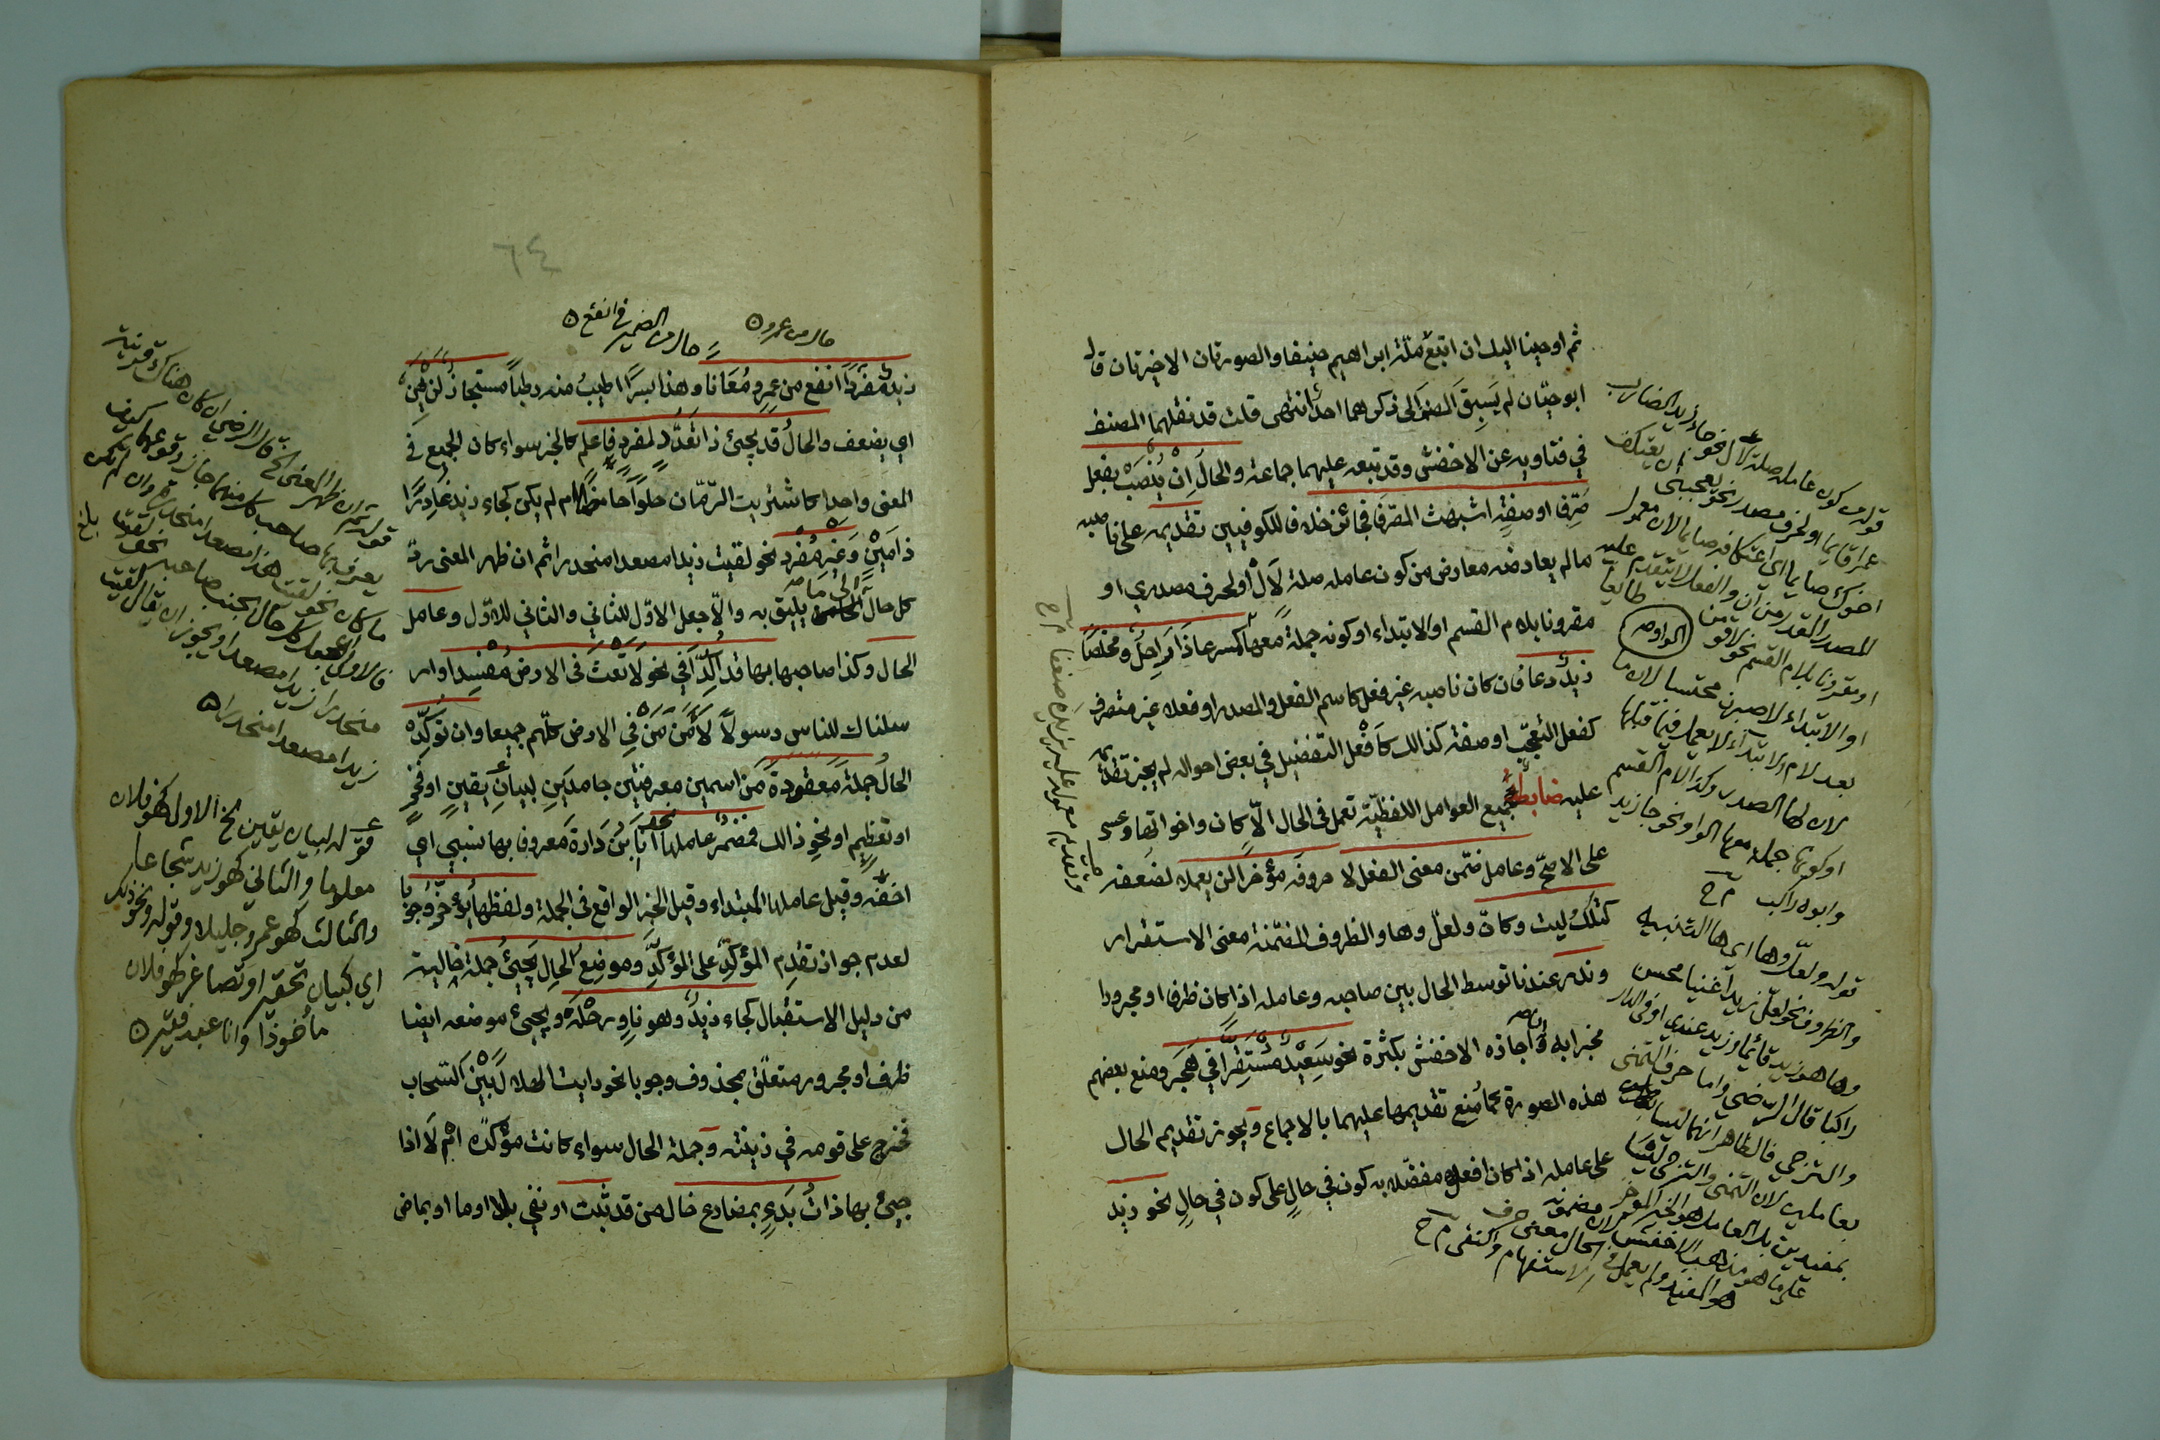 ثم اوحينا اليك ان اتبع ملة ابراهيم حنيفا والصورتان الاخيرتان قال
ابو حيّان لم يَسبِق المصنف الى ذكرهما احدٌ انتهى قلت قد نقلهما المصنف
في فتاويه عن الاخفش وقد تبعه عليهما جماعة والحالَ اِنْ يُنْصَبْ بفعل
صُرِّفا او صفةٍ اشبهت المصرّفا فجائز خلافا للكوفيين تقديمه على ناصبه
ما لم يعارضه معارض من كون عامله صلة لاَلْ او لحرف مصدري او
مقرونا بلام القسم او الابتداء او كونه جملةً معها كمسرعا ذَا رَاحِلٌ ومخلصًا
زيدٌ دعا فان كان ناصبه غير فعل كاسم الفعل والمصدر او فعلا غير متصرف
كفعل التعجّب او صفة كذالك كاَفْعَل التفضيل في بعض احواله لم يجز تقديمه
عليه ضابطةٌ جميع العوامل اللفظيّة تعمل في الحال الاّ كان واخواتها وعسى
على الاصحّ وعامل ضُمّن معنى الفعل لا حروفَه مؤخّرا لن يعملا لضعفه
كتلكَ ليت وكأنّ ولعلّ وها والظروف المضمّنة معنى الاستقرار
وندر عندنا توسط الحال بين صاحبه وعامله اذا كان ظرفا او مجرورا
مخبرا به واجازه الاخفش بكثرة نحو سَعِيْدٌ مُسْتَقِرًّا في هَجَرَ ومنع بعضهم
هذه الصورة كما مُنِع تقديمها عليهما بالاجماع ويجوز تقديم الحال
على عامله اذا كان افعل مفضّلا به كون في حالٍ على كون في حالٍ نحو زيد
قوله من كون عامله صلة لال نحو جاء زيد الضارب
عمرا قايما او لحرف مصدر نحو يعجبني ان يعتكف
اخوك صايما اي اعتكافه صايما لان معمول
للمصدر المقدر من ان والفعل لا يتقدم عليه
او مقرونا بلام القسم نحو لاقومن طائعا
او الابتداء لاصبرن محتسبا لان ما
بعد لام الابتداء لا يعمل فيما قبلها
لان لها الصدر وكذا لام القسم
او كونها جملة معها الواو نحو جا زيد
وابوه راكب م ح
قوله ولعلّ وها اي ها التنبيه
والظروف نحو لعل زيدا غنيا محسن
وها هو زيد قائما وزيد عندي او في الدار
راكبا قال الرضي واما حرف التمني
والترجي فالظاهر انهما ليسا
بعاملين لان التمني والترجي ليسا
بمقيدين بل العامل هو الخبر المؤخر
على ما هو مذهب الاخفش
زيدٌ مفردًا انفع من عمرٍو مُعَانا وهذا بسرًا اطيبُ منه رطباً مستجازٌ لن يَهِنْ
اي يضعف والحالُ قد يجئ ذا تعدُّدٍ لمفردٍ فاعلم كالخبر سواء كان الجميع في
المعنى واحدا كاشتريت الرّمّان حلواً حامضًا ام لم يكن كجاء زيد غادِرًا
ذا مَيْنٍ وَغيْرِ مُفْرَدٍ نحو لقيت زيدا مصعدا منحدرا ثم ان ظهر المعنى ردّ
كل حال الى ما يليق به والاّ جعل الاوّل للثاني والثاني للاوّل وعامل
الحال وكذا صاحبها بها قد اُكِّدَا في نحو لاَ تَعْثَ في الارض مُفْسِدا وار
سلناك للناس رسولاً لآمَن مَن في الارض كلّهم جميعا وان تُوَكِّدْه
الحالُ جملةً معقودةً من اسمين معرفتين جامدَينِ لبيانِ يقينٍ او فخرٍ
او تعظيمٍ او نحوِ ذالك فمضمرٌ عاملها نحو انا ابنُ دَارةَ معروفا بها نسبي اي
احقّه وقيل عاملها المبتداء وقيل الخبر الواقع في الجملة ولفظها يُؤخّرُ وجوبا
لعدم جواز تقديم المؤكِّد على المؤكَّد وموضِعُ الحالِ يَجيئُ جملة خالية
من دليل الاستقبال كجاء زيدٌ وهو ناوٍ رِحْلَه ويجيئ موضعه ايضا
ظرف او مجرور متعلّق بمحذوف وجوبا نحو رايت الهلال بَيْنَ السّحاب
فخرج على قومه في زينته وجملة الحال سواء كانت مؤكّدَه ام لاَ اذا
جيئ بها ذاتُ بَدءٍ بمضارع خال من قد ثبت او نفي بلا او ما او بماض
حال من عمرو
حال من الضمير في انفع
قوله ثم ان ظهر المعنى الخ قال الرضي ان كان هناك قرينة
يعرف بها صاحب كل منهما جاز وقوعهما كيف
ما كان نحو لقيت هندا مصعدا منحدرة وان لم تكن
فالاولى ان يجعل كل حال بجنب صاحبه نحو لقيت
منحدرا زيدا مصعدا ويجوز ان يقال لقيت
زيدا مصعدا منحدرا
بلغ
قوله لبيان يقين الخ الاول كهو فلان
معلوما والثاني كهو زيد شجاعا
والثالث كهو عمرو جليلا وقوله ونحو ذلك
اي كبيان تحقير او تصاغر كهو فلان
مأخوذا وانا عبد فقير
٦٤